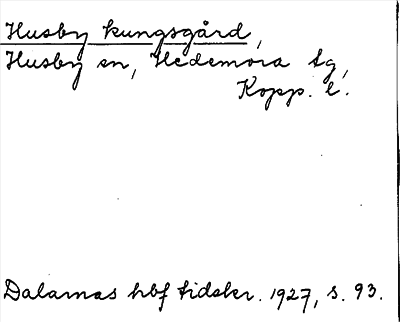 Husby kungsgård,
Husby sn, Hedemora tg,
Kopp. l.
Dalarnas hbf tidskr. 1927, s. 93.